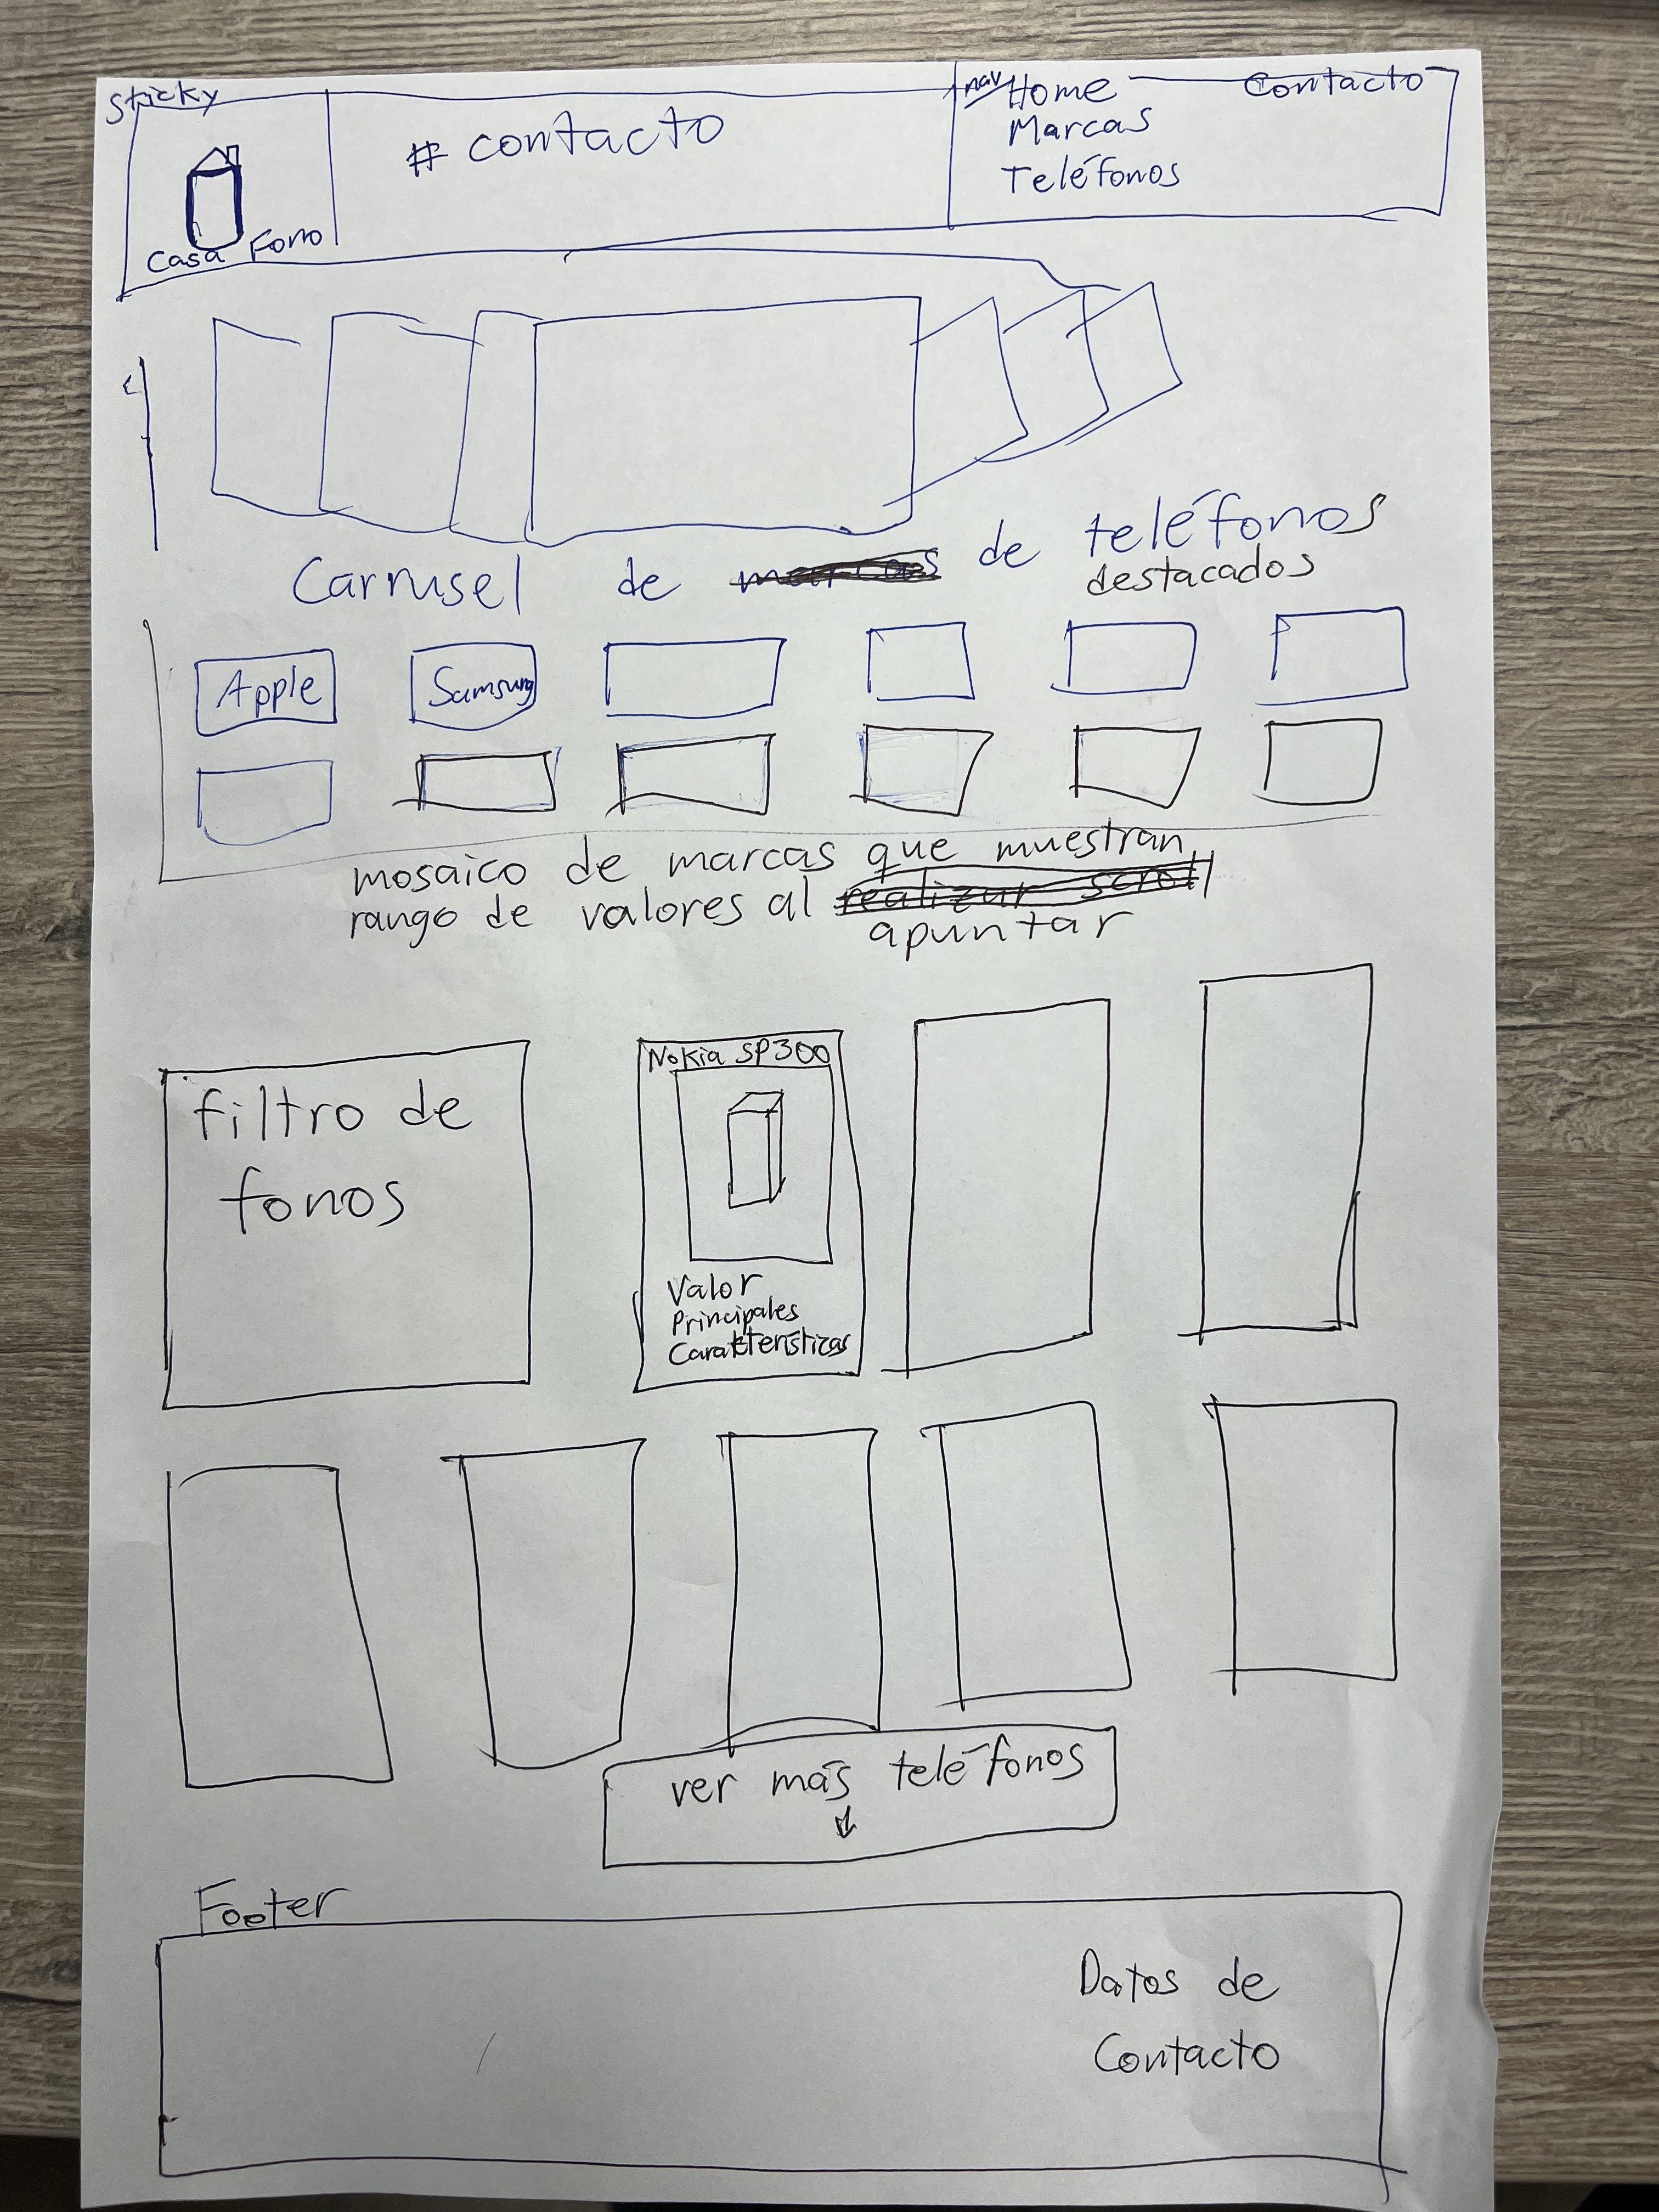 Sticky
Casa Fono
# contacto
nav
Home
Contacto
Marcas
Teléfonos
Carrusel de de teléfonos
destacados
Apple
Samsung
mosaico de marcas que muestran
rango de valores al realizar scroll
apuntar
filtro de
fonos
Nokia SP300
Valor
Principales
Características
ver más teléfonos
Footer
Datos de
Contacto